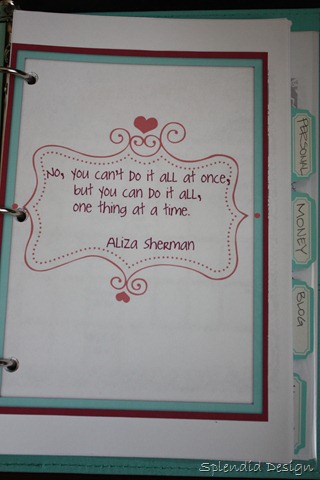 No, you can't do it all at once,
but you can do it all,
one thing at a time.
Aliza Sherman
PERSONAL
MONEY
BLOG
Splendid Design